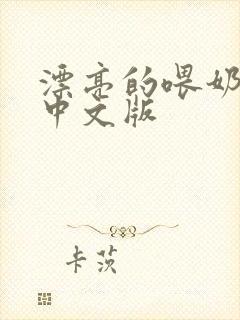 漂亮的喂奶
中文版
卡茨